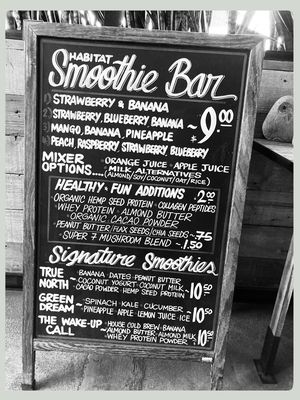 HABITAT
Smoothie Bar
1) STRAWBERRY & BANANA
2) STRAWBERRY, BLUEBERRY BANANA ~ 9.00
3) MANGO, BANANA, PINEAPPLE
4) PEACH, RASPBERRY, STRAWBERRY BLUEBERRY
MIXER OPTIONS.... ORANGE JUICE • APPLE JUICE
MILK ALTERNATIVES
(ALMOND/SOY/COCONUT/OAT/RICE)
HEALTHY & FUN ADDITIONS ~ 2.00
ORGANIC HEMP SEED PROTEIN • COLLAGEN PEPTIDES
WHEY PROTEIN • ALMOND BUTTER
ORGANIC CACAO POWDER
PEANUT BUTTER/FLAX SEEDS/CHIA SEEDS ~ .75
SUPER 7 MUSHROOM BLEND ~ 1.50
Signature Smoothies
TRUE NORTH ~ BANANA • DATES • PEANUT BUTTER
COCONUT YOGURT • COCONUT MILK ~ 10.50
CACAO POWDER • HEMP SEED PROTEIN
GREEN DREAM ~ SPINACH • KALE • CUCUMBER ~ 10.50
PINEAPPLE • APPLE • LEMON JUICE • ICE
THE WAKE-UP CALL ~ HOUSE COLD BREW • BANANA
ALMOND BUTTER • ALMOND MILK ~ 10.50
WHEY PROTEIN POWDER